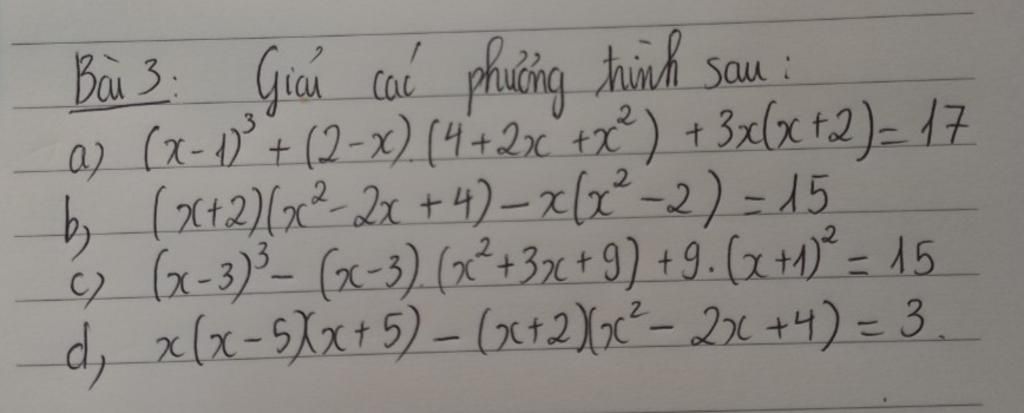 Bài 3: Giải các phương trình sau:
a) (x-1)³ + (2-x).(4+2x+x²) + 3x(x+2) = 17
b, (x+2)(x²-2x+4) - x(x²-2) = 15
c) (x-3)³ - (x-3).(x²+3x+9) + 9.(x+1)² = 15
d, x(x-5)(x+5) - (x+2)(x²-2x+4) = 3.